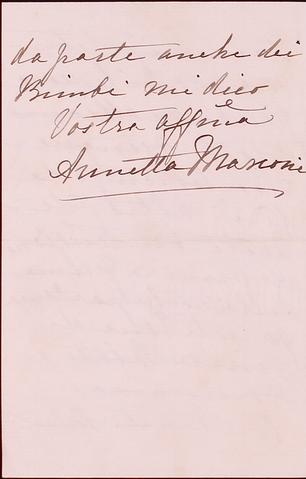 da parte anche dei
Bimbi mi dico
Vostra affma
Annetta Marconi